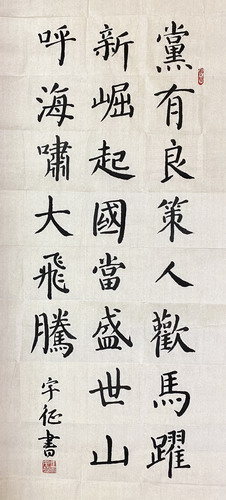 黨有良策人歡馬躍
新崛起國當盛世山
呼海嘯大飛騰
宇征書